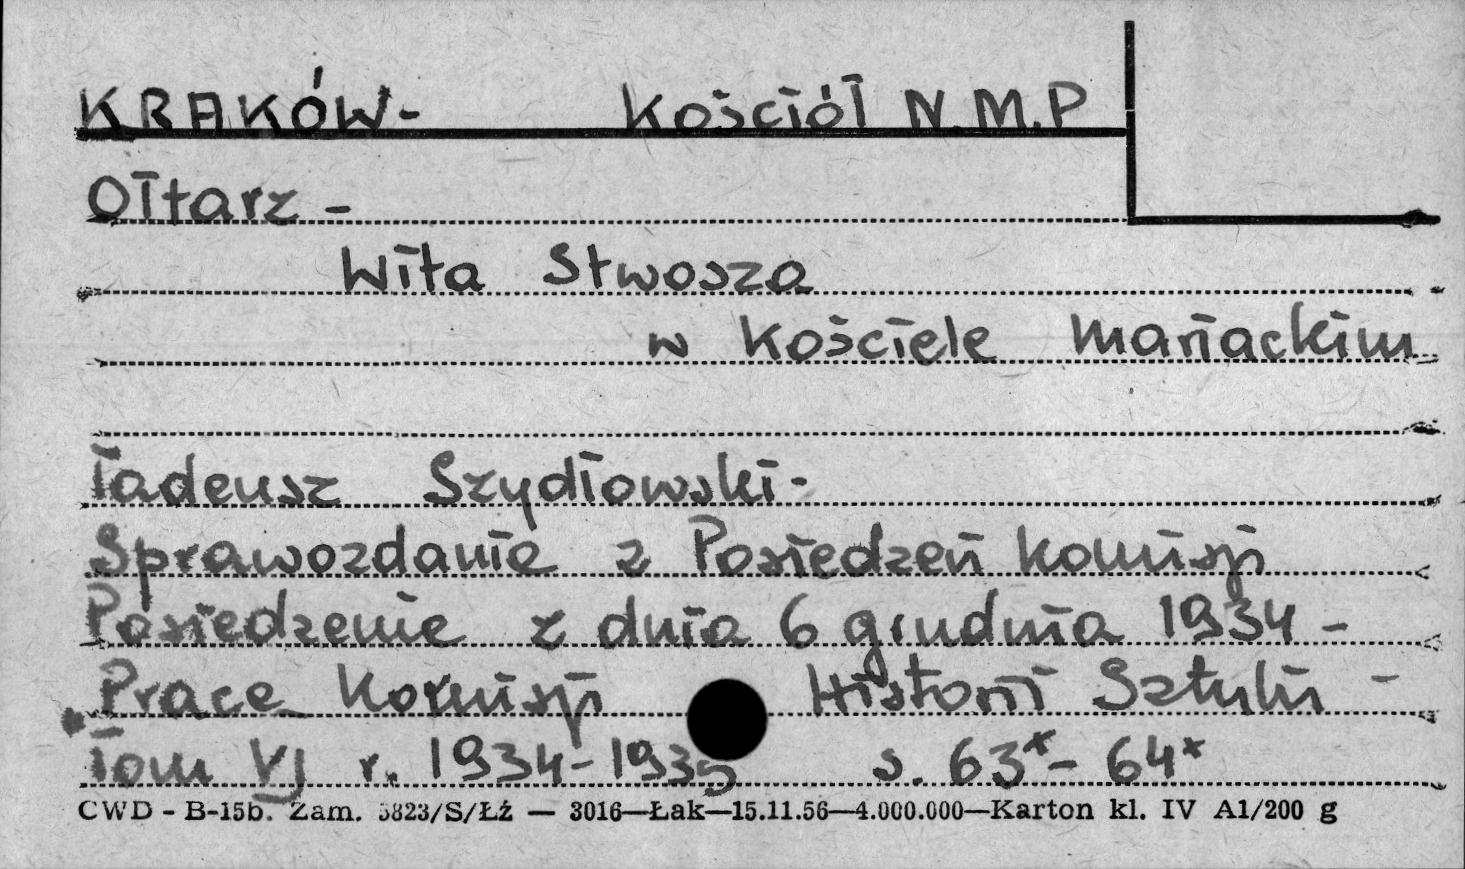 KRAKÓW- Kościół N.M.P
Ołtarz -
Wita Stwosza
w Kościele Mariackim
Tadeusz Szydłowski-
Sprawozdanie z Posiedzeń Komisji
Posiedzenie z dnia 6 grudnia 1934 -
Prace Komisji Historii Sztuki -
Tom VJ r. 1934-1935 s. 63*- 64*
CWD - B-15b. Zam. 5823/S/Łż — 3016—Łak—15.11.56—4.000.000—Karton kl. IV A1/200 g